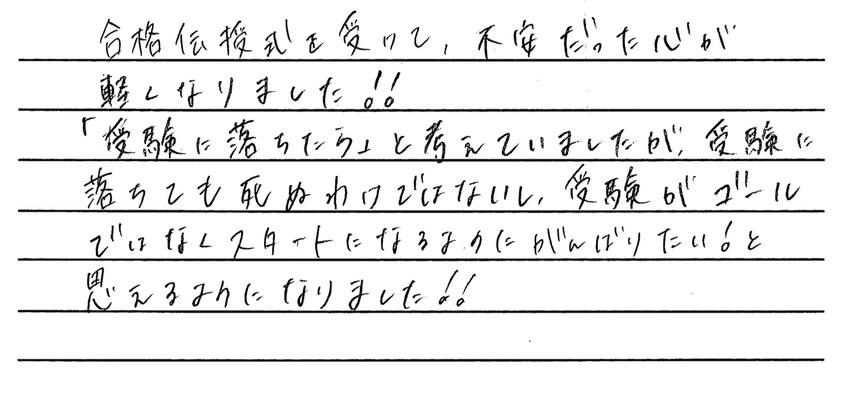 合格伝授式を受けて、不安だった心が
軽くなりました!!
「受験に落ちたら」と考えていましたが、受験に
落ちても死ぬわけではないし、受験がゴール
ではなくスタートになるようにがんばりたい!と
思えるようになりました!!